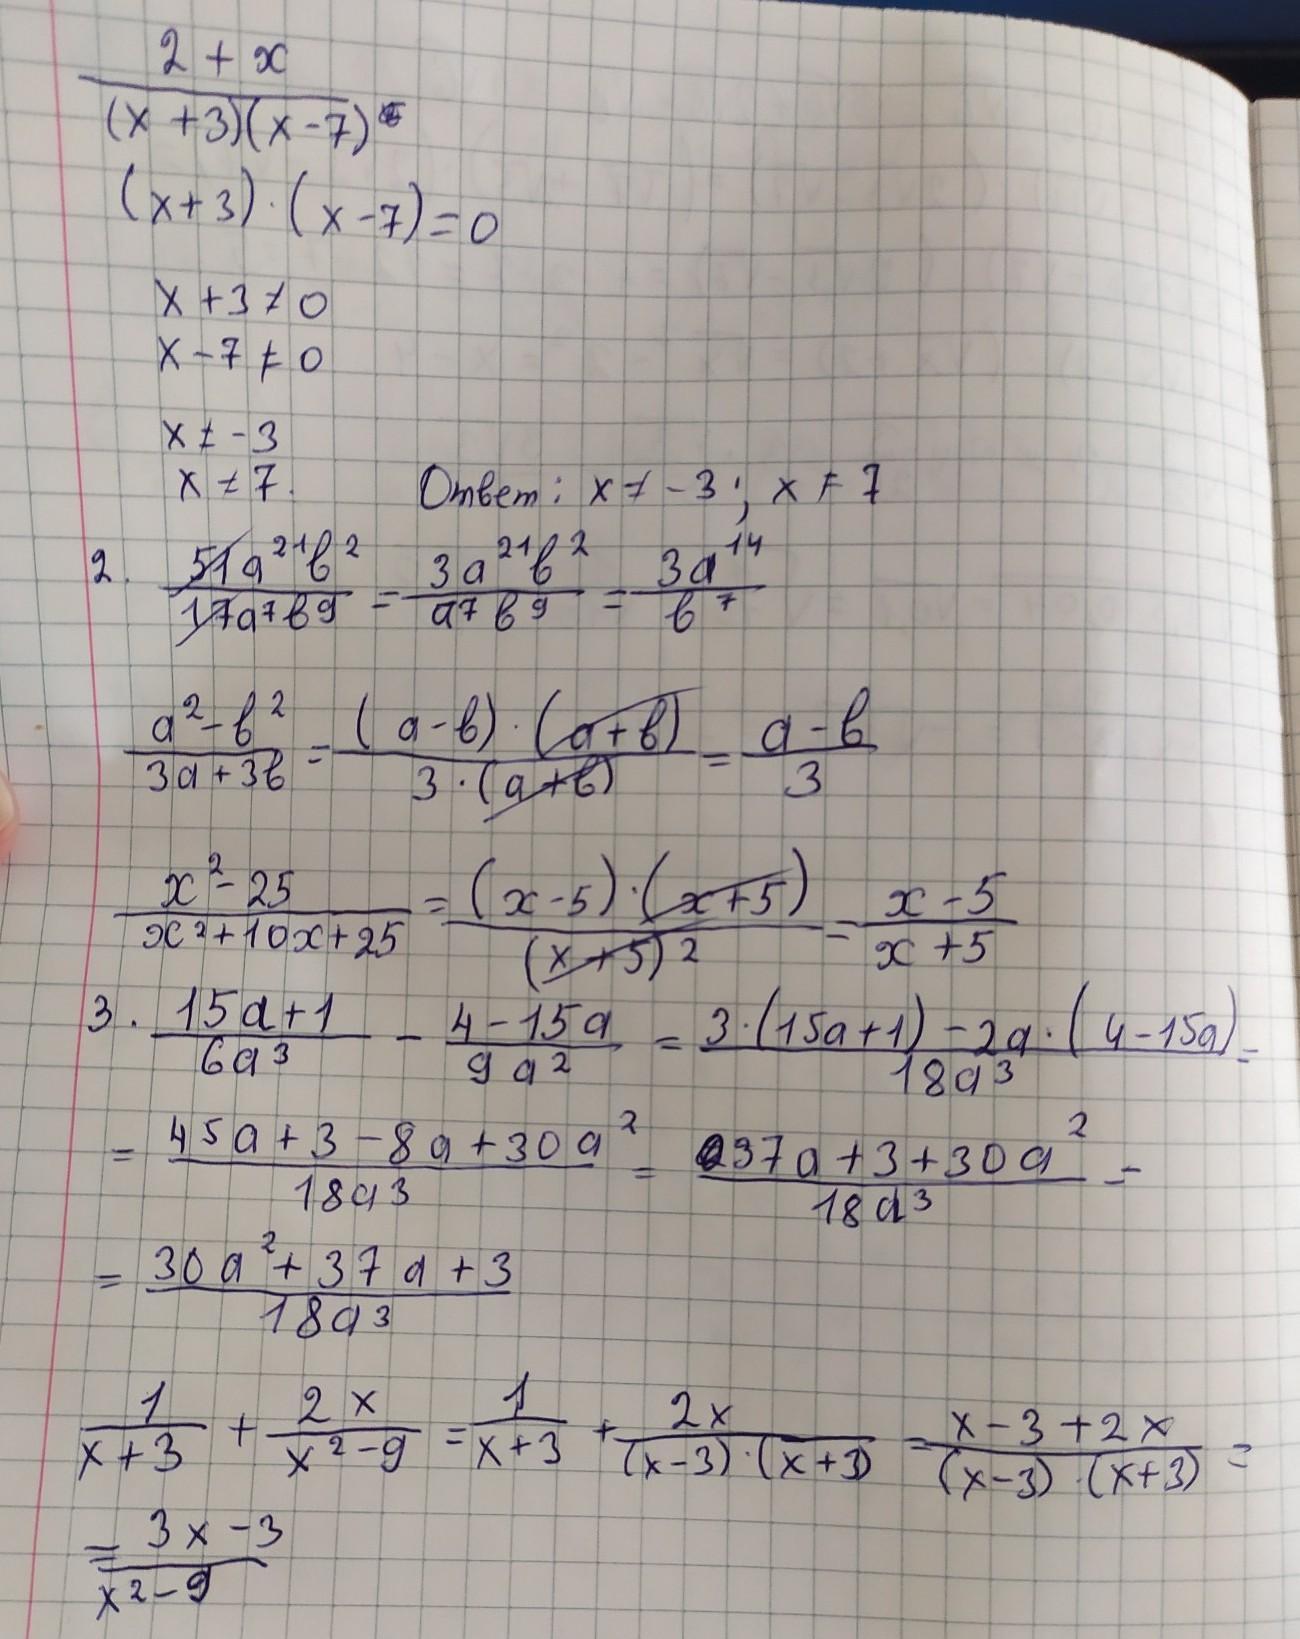 (2 + x)/((x + 3)(x - 7))
(x + 3) · (x - 7) = 0
x + 3 ≠ 0
x - 7 ≠ 0
x ≠ -3
x ≠ 7. Ответ: x ≠ -3; x ≠ 7
2. (51a²¹b²)/(17a⁷b⁹) = (3a²¹b²)/(a⁷b⁹) = (3a¹⁴)/(b⁷)
(a² - b²)/(3a + 3b) = ((a - b) · (a + b))/(3 · (a + b)) = (a - b)/3
(x² - 25)/(x² + 10x + 25) = ((x - 5) · (x + 5))/((x + 5)²) = (x - 5)/(x + 5)
3. (15a + 1)/(6a³) - (4 - 15a)/(9a²) = (3 · (15a + 1) - 2a · (4 - 15a))/(18a³) =
= (45a + 3 - 8a + 30a²)/(18a³) = (37a + 3 + 30a²)/(18a³) =
= (30a² + 37a + 3)/(18a³)
1/(x + 3) + (2x)/(x² - 9) = 1/(x + 3) + (2x)/((x - 3) · (x + 3)) = (x - 3 + 2x)/((x - 3) · (x + 3)) =
= (3x - 3)/(x² - 9)